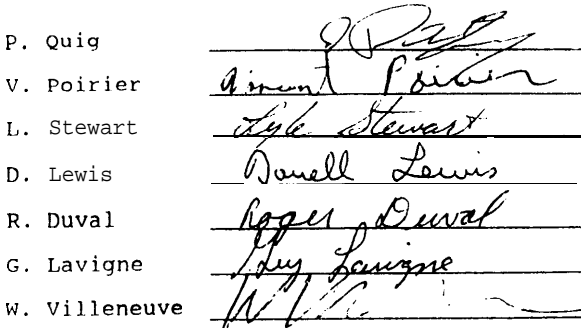 P. Quig
V. Poirier Poirier
L. Stewart Lyle Stewart
D. Lewis Darrell Lewis
R. Duval Roger Duval
G. Lavigne Guy Lavigne
W. Villeneuve